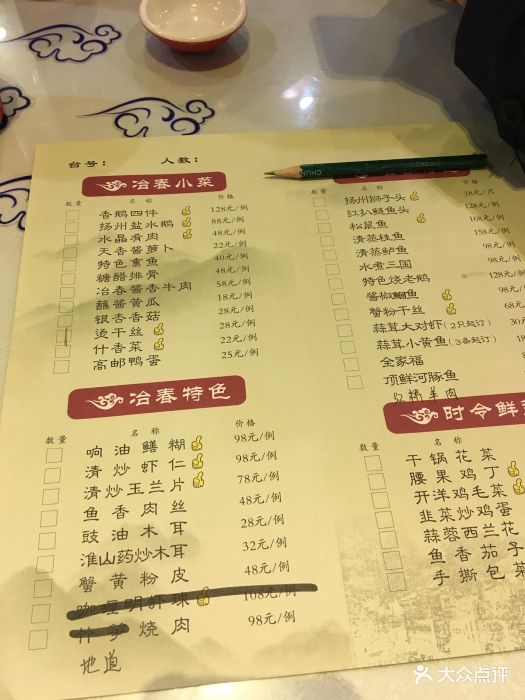 台号： 人数：
冶春小菜
数量 名称 价格
香鹅四件 128元/例
扬州盐水鹅 88元/例
水晶肴肉 48元/例
天香酱萝卜 22元/例
特色熏鱼 40元/例
糖醋排骨 48元/例
冶春酱香牛肉 58元/例
蘸酱黄瓜 18元/例
银杏香菇 28元/例
烫干丝 28元/例
什香菜 22元/例
高邮鸭蛋 25元/例
冶春特色
数量 名称 价格
响油鳝糊 98元/例
清炒虾仁 98元/例
清炒玉兰片 78元/例
鱼香肉丝 48元/例
豉油木耳 28元/例
淮山药炒木耳 32元/例
蟹黄粉皮 48元/例
咖喱明虾球 108元/例
烧肉 98元/例
地道
CHUN
数量 名称
扬州狮子头 18元/只
红扒鲢鱼头 128元/
松鼠鱼 168元/
清蒸桂鱼 158元
清蒸鲈鱼 98元/
水煮三国 98元/
特色烧老鹅 128元
酱椒鮰鱼 98元/
蟹粉干丝 68元
蒜茸大对虾（2只起订） 30元
蒜茸小黄鱼（3条起订）
全家福
顶鲜河豚鱼
时令鲜
数量 名称
干锅花菜
腰果鸡丁
开洋鸡毛菜
韭菜炒鸡蛋
蒜蓉西兰花
鱼香茄子
手撕包菜
大众点评